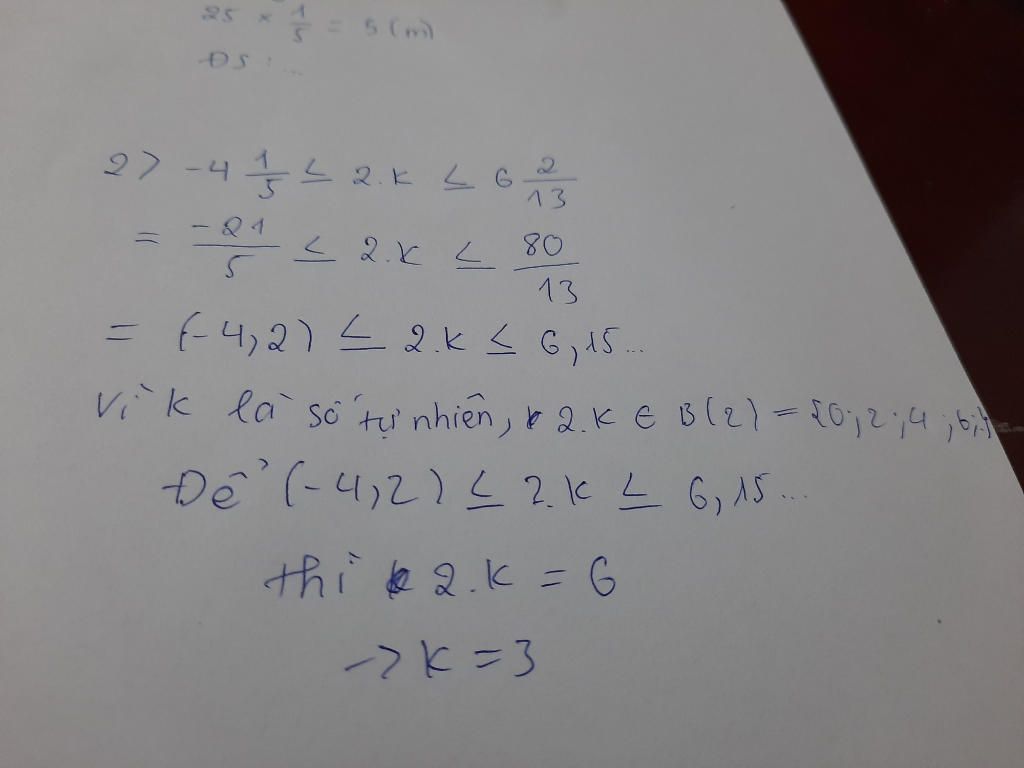 25 × 1/5 = 5 (m)
ĐS : ...
2> -4 1/5 ≤ 2.k ≤ 6 2/13
= -21/5 ≤ 2.k ≤ 80/13
= (-4,2) ≤ 2.k ≤ 6,15...
Vì k là số tự nhiên, 2.k ∈ B(2) = {0;2;4;6;}...
Để (-4,2) ≤ 2.k ≤ 6,15...
thì 2.k = 6
-> k = 3